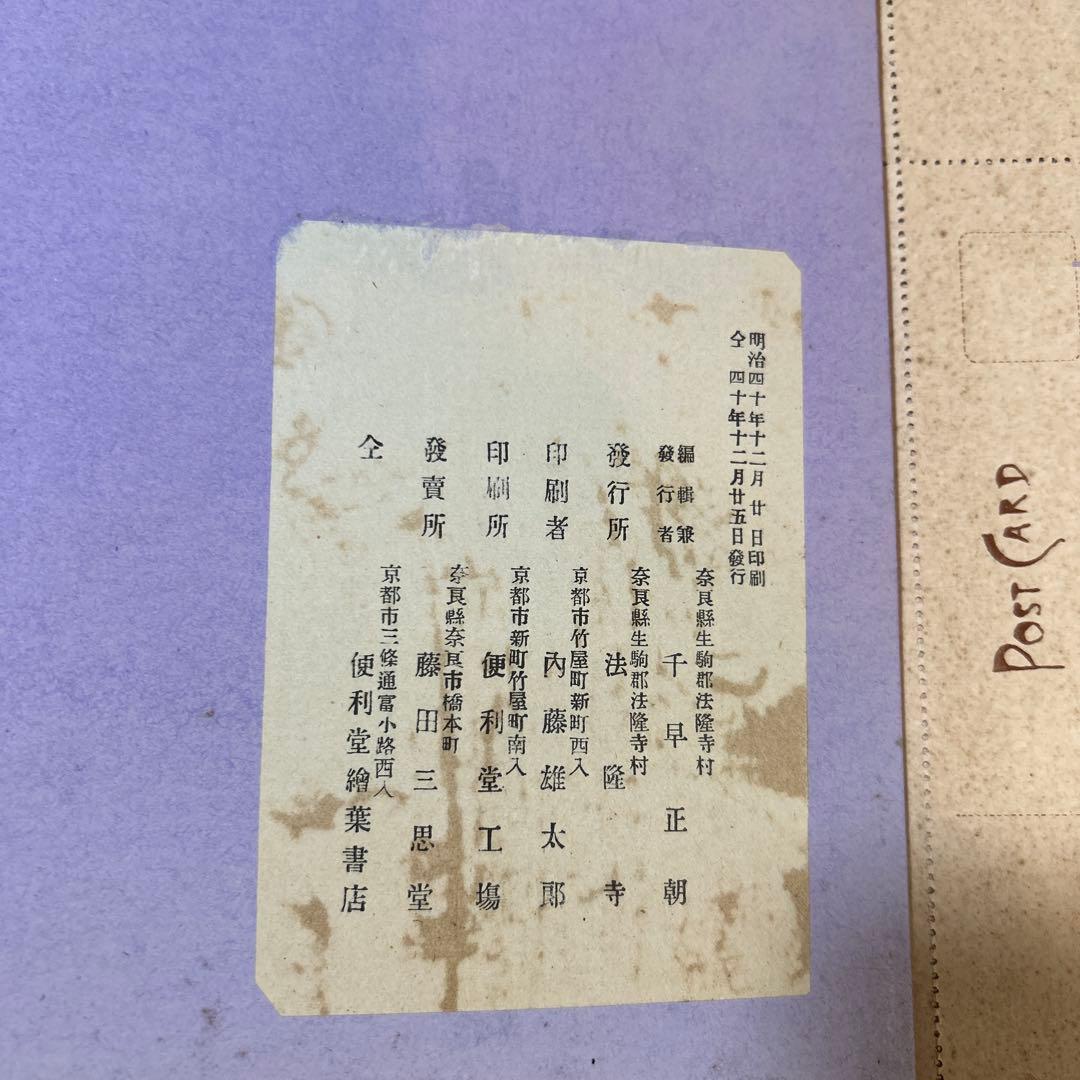 明治四十年十二月廿日印刷
仝四十年十二月廿五日發行
編輯兼
發行者
奈良縣生駒郡法隆寺村
千早正朝
發行所
奈良縣生駒郡法隆寺村
法隆寺
印刷者
京都市竹屋町新町西入
內藤雄太郎
印刷所
京都市新町竹屋町南入
便利堂工塲
發賣所
奈良縣奈良市橋本町
藤田三思堂
仝
京都市三條通富小路西入
便利堂繪葉書店
POST CARD